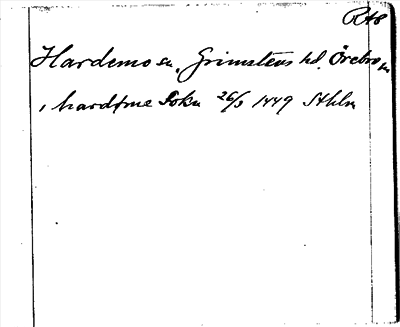 RA8
Hardemo sn, Grimstens hd, Örebro ln
i hardhme Sokn 26/3 1449 Sthlm